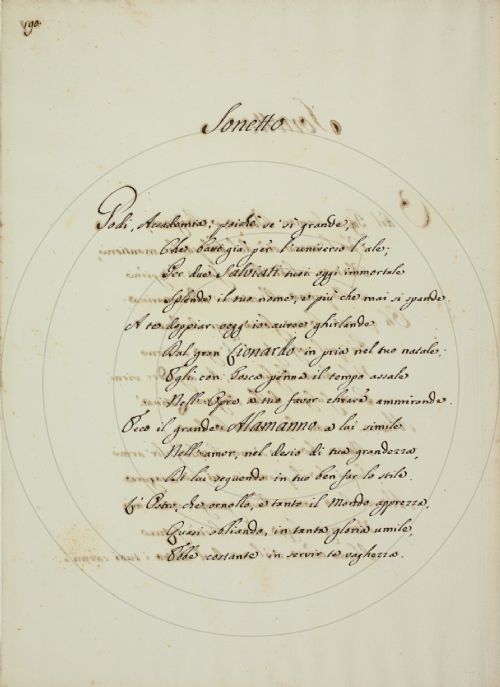 190.
Sonetto
Godi, Accademia, poichè se' sì grande,
Che batti già per l'universo l'ale;
Per due Salviati tuoi oggi immortale
Splende il tuo nome, e più che mai si spande
A te doppiar vegg'io auree ghirlande
Dal gran Lionardo in pria nel tuo natale:
Egli con Tosca penna il tempo assale
Nell'Opre a tuo favor chiare ammirande.
Ecco il grande Alamanno a lui simile
Nell'amor, nel desio di tua grandezza,
Di lui seguendo in tuo ben far lo stile.
E l'Ostro, che ornollo, e tanto il Mondo apprezza,
Quasi obliando, in tanta gloria umile,
Ebbe costante in servir te vaghezza.